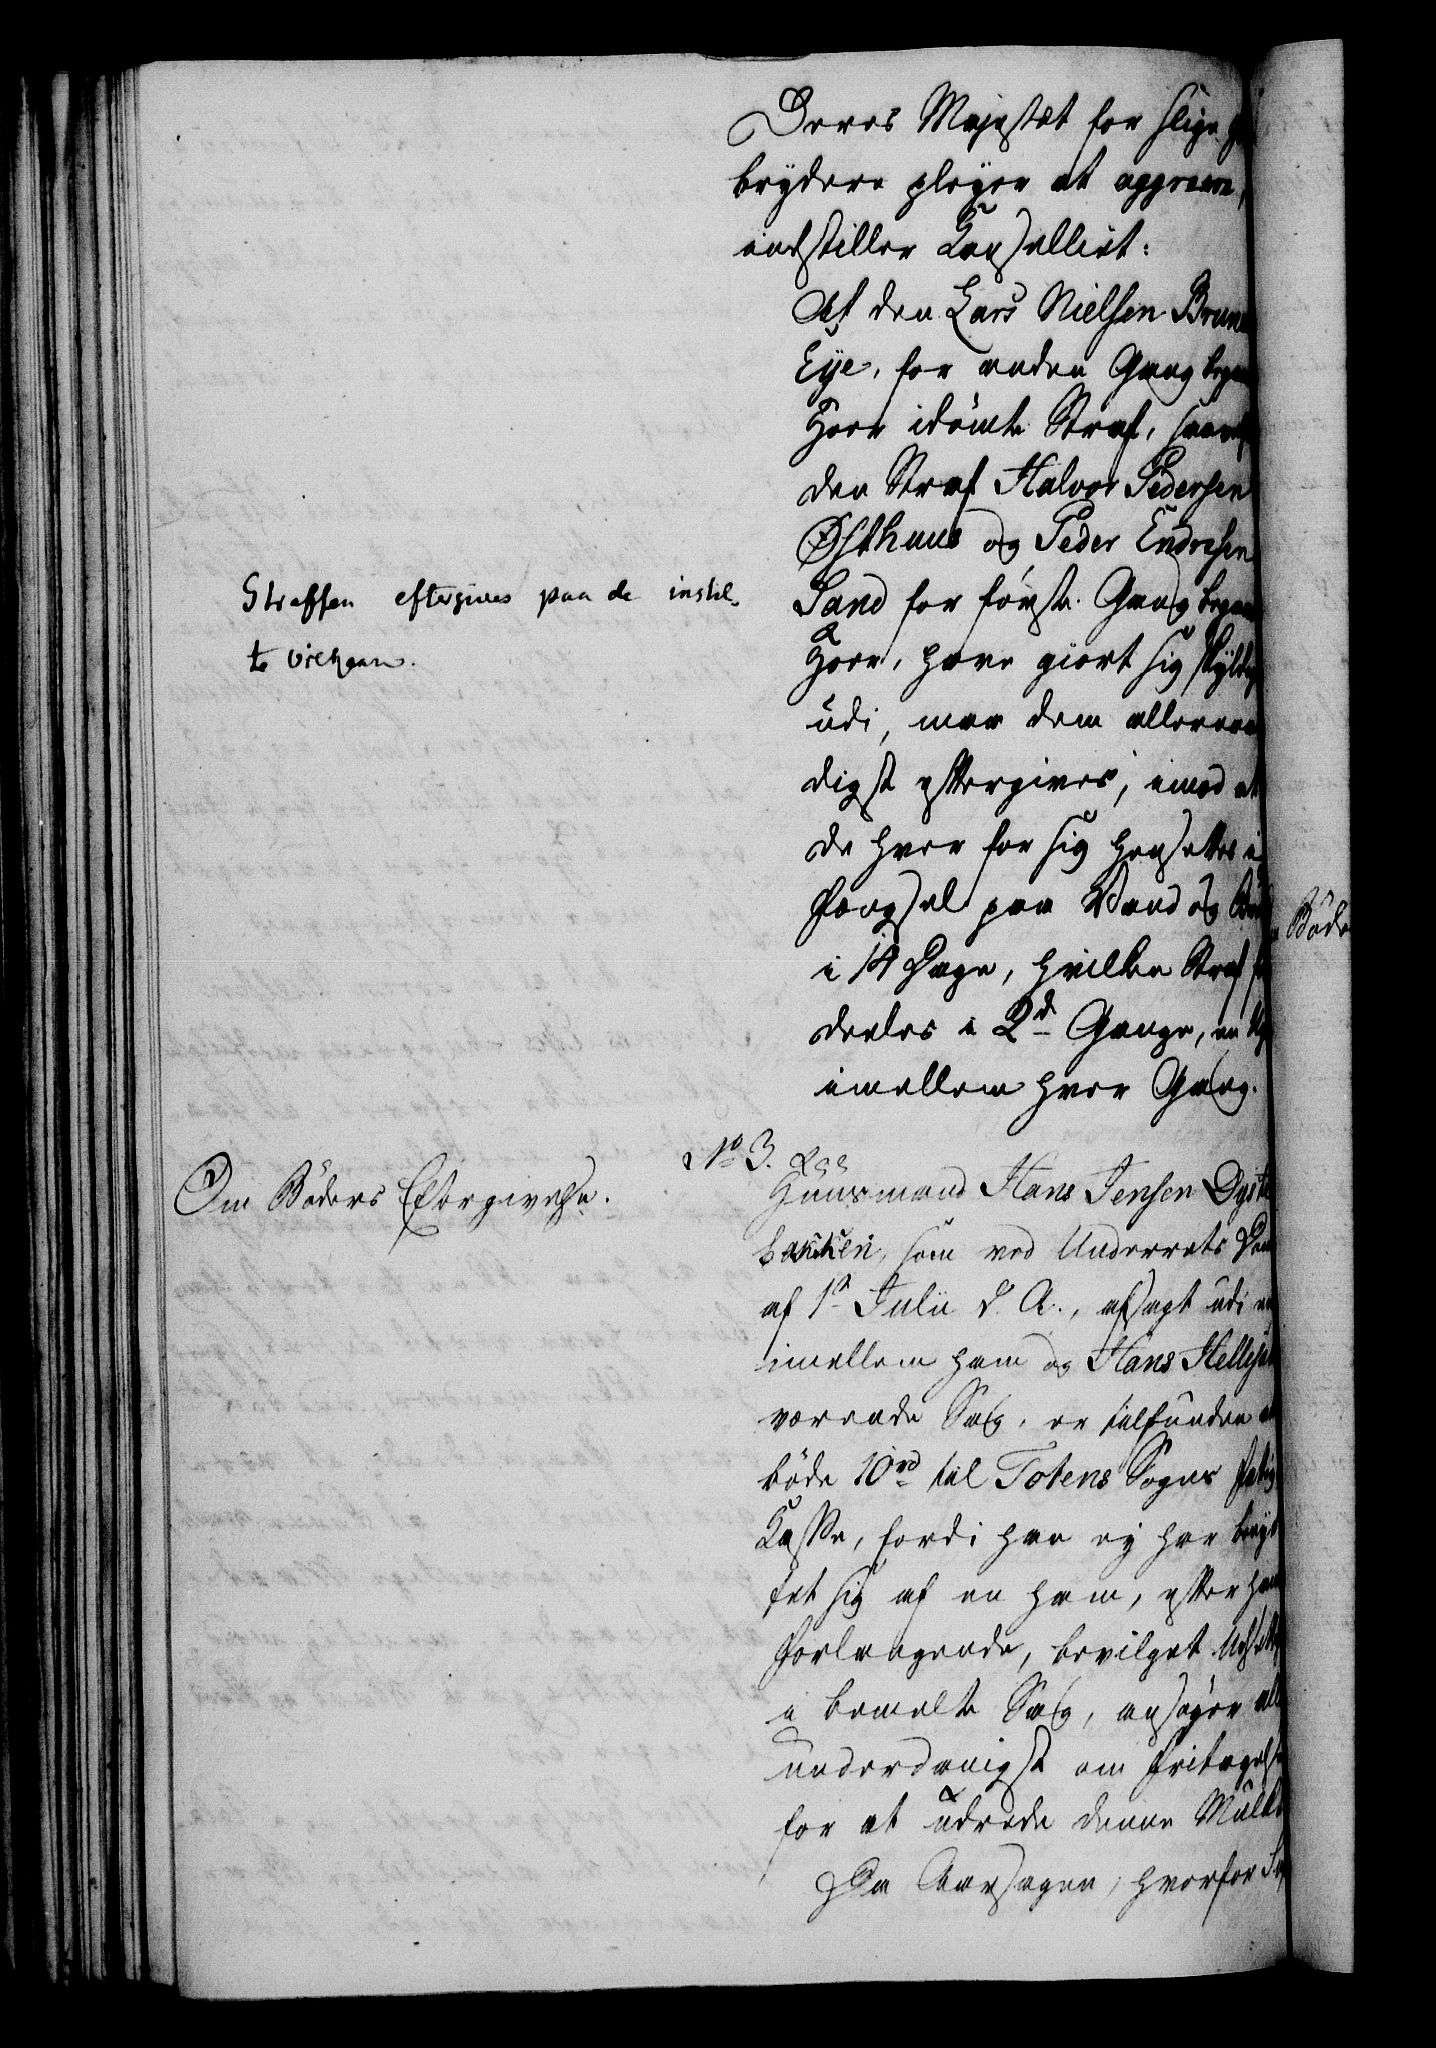 Deres Majestæt for slige
brydere pleyer at aggreere,
indstiller Kancelliet:
At den Lars Nielsen Brune
Eye, for anden Gang began
Hoer idömte Straf, saavel
den Straf Halvor Pedersen
Østhuus og Peder Endresen
Sand for förste Gang began
Hoer, have giort sig skyldig
udi, maa dem allernaa
digst eftergives, imod at
de hver for sig hensættes i
Fængsel paa Vand og Bröd
i 14 Dage, hvilken Straf
deeles i 2de Gange, en Uge
imellem hver Gang.
Straffen eftergives paa de instil-
te vilkaar.
No 3.
Om Böders Eftergivelse.
Huusmand Hans Jensen Dyste
bakken, som ved Underrets Dom
af 1ste Julii d. A., afsagt udi en
imellem ham og Hans Hellesen
værende Sag, er tilfunden at
böde 10 rd til Totens Sogns Fattig
Kasse, fordi han ey har benyt
tet sig af en ham, efter hans
Forlangende, bevilget Udsættelse
i bemelte Sag, ansöger aller
underdanigst om Fritagelse
for at udrede denne Mulkt.
Da Aarsagen, hvorfor
Böder